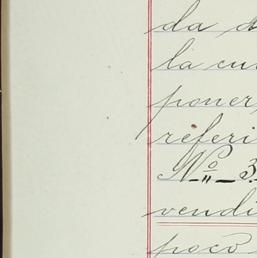 da d
la cu
poner
referi
No. 3
vendi
poco